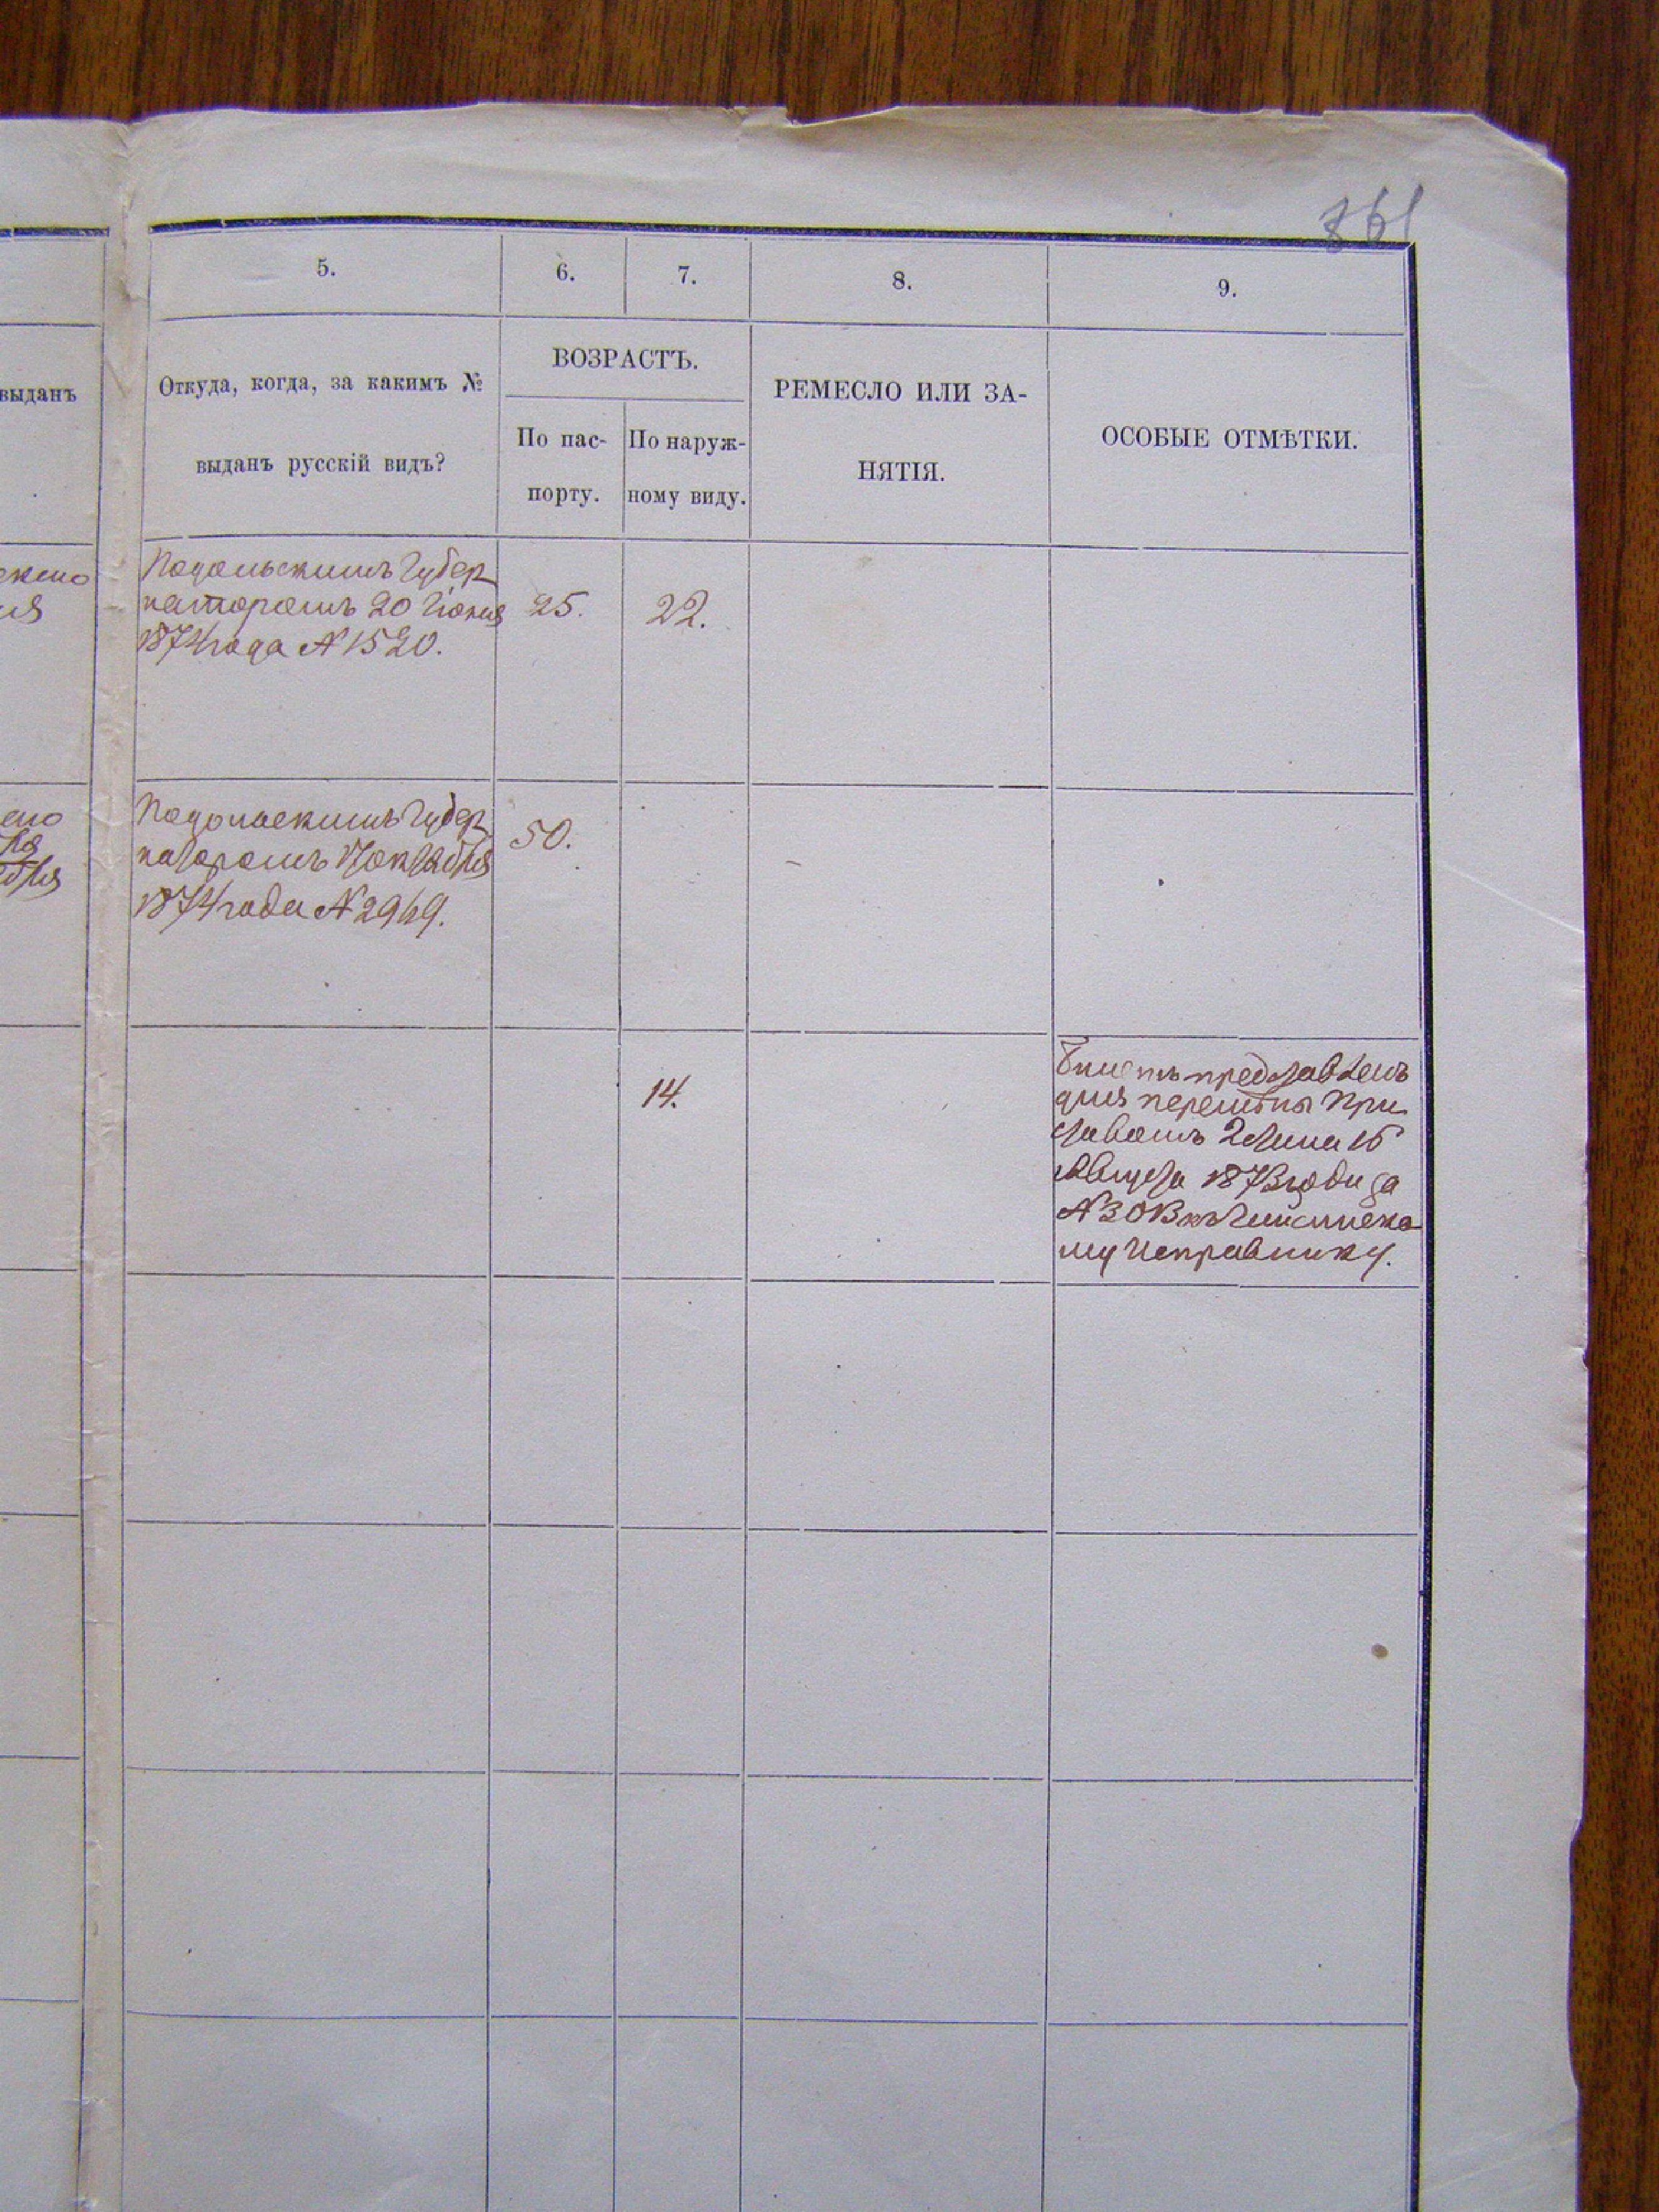 861
5.
6.
7.
8.
9.
выданъ
Откуда, когда, за какимъ №
выданъ русскій видъ?
ВОЗРАСТЪ.
По пас-
порту.
По наруж-
ному виду.
РЕМЕСЛО ИЛИ ЗА-
НЯТІЯ.
ОСОБЫЕ ОТМѢТКИ.
Подольскимъ Губер
наторомъ 20 Іюня
1874 года № 1520.
25.
22.
Подольскимъ Губер
наторомъ 17 октября
1874 года № 2969.
50.
14.
Билетъ представленъ
для перемѣны При
ставомъ 2 Стана 16
Августа 1873 года за
№ 3013 къ
му Исправнику.